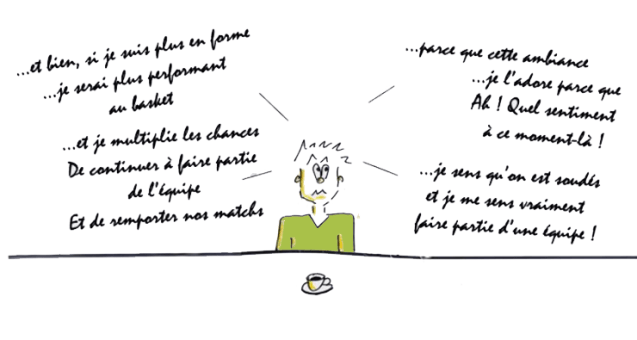 ...et bien, si je suis plus en forme
...je serai plus performant
au basket
...et je multiplie les chances
De continuer à faire partie
de l'équipe
Et de remporter nos matchs
...parce que cette ambiance
...je l'adore parce que
Ah ! Quel sentiment
à ce moment-là !
...je sens qu'on est soudés
et je me sens vraiment
faire partie d'une équipe !